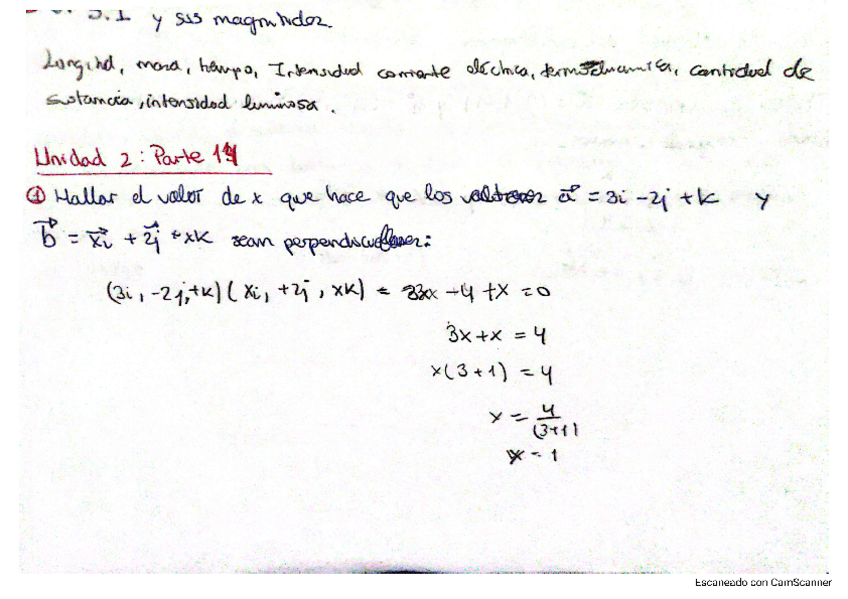 S.I y sus magnitudes.
Longitud, masa, tiempo, Intensidad corriente eléctrica, termodinamica, cantidad de
sustancia, intensidad luminosa.
Unidad 2: Parte 1
① Hallar el valor de x que hace que los vectores a⃗ = 3i - 2j + k y
b⃗ = xi + 2j + xk sean perpendiculares:
(3i, -2j, +k)(xi, +2j, xk) = 3x - 4 + x = 0
3x + x = 4
x(3+1) = 4
x = 4/(3+1)
x = 1
Escaneado con CamScanner